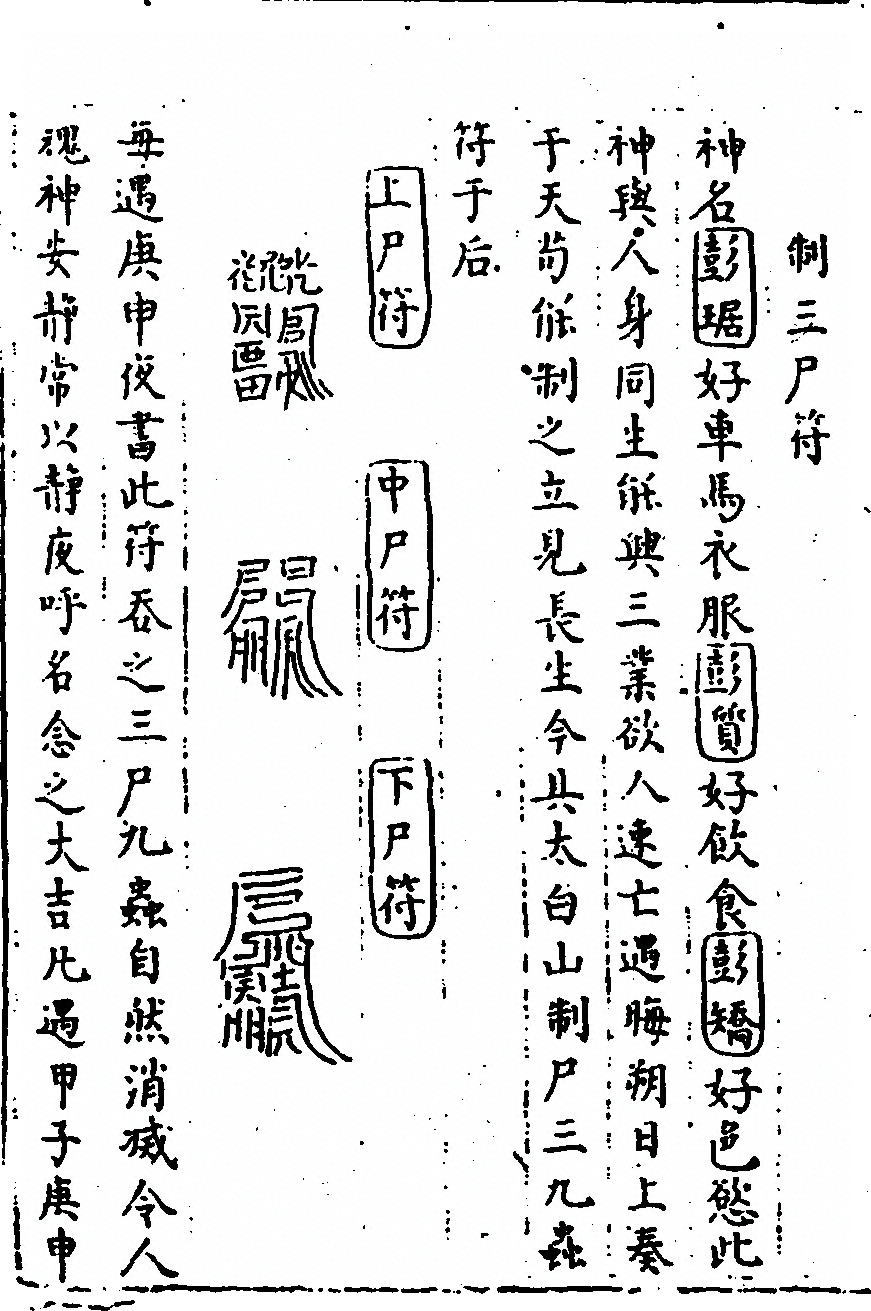 制三尸符
神名彭琚好車馬衣服彭質好飲食彭矯好色慾此
神與人身同生能興三業欲人速亡遇晦朔日上奏
于天苟能制之立見長生今具太白山制尸三九蟲
符于后
上尸符 中尸符 下尸符
每遇庚申夜書此符吞之三尸九蟲自然消滅令人
魂神安靜常以靜夜呼名念之大吉凡遇甲子庚申